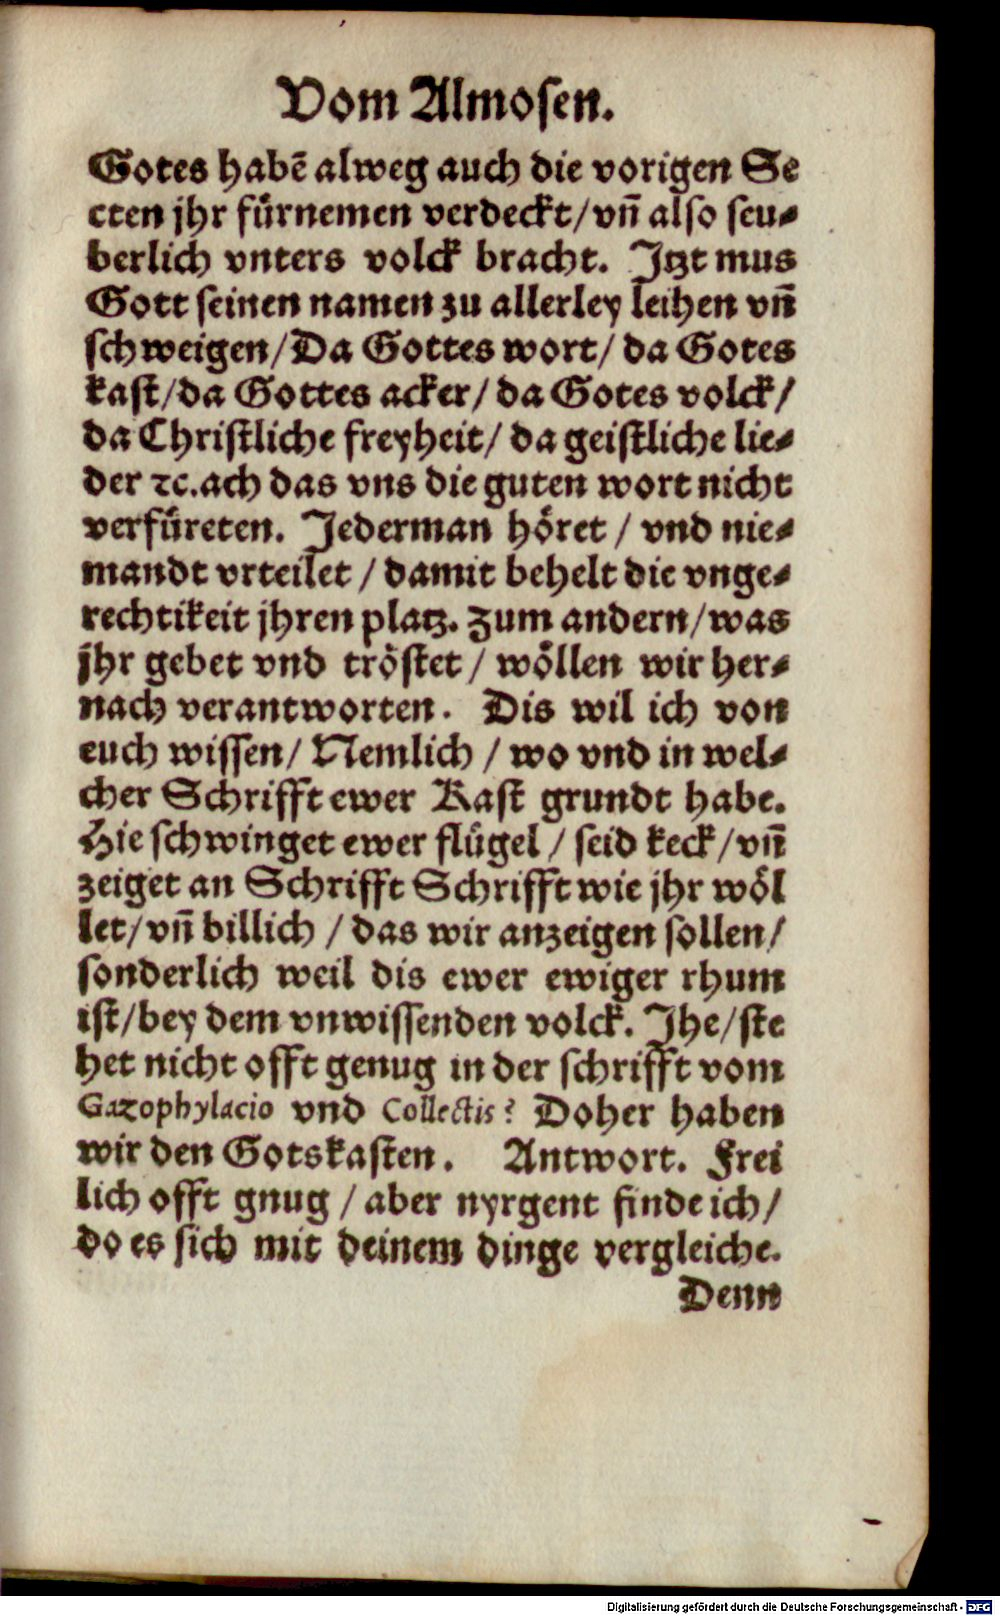 Vom Almosen.
Gotes habē alweg auch die vorigen Se
cten jhr fürnemen verdeckt/ vñ also seu⸗
berlich vnters volck bracht. Jtzt mus
Gott seinen namen zu allerley leihen vñ
schweigen/ Da Gottes wort/ da Gotes
kast/ da Gottes acker/ da Gotes volck/
da Christliche freyheit/ da geistliche lie⸗
der ꝛc. ach das vns die guten wort nicht
verfüreten. Jederman höret / vnd nie⸗
mandt vrteilet / damit behelt die vnge⸗
rechtikeit jhren platz. Zum andern/ was
jhr gebet vnd tröstet / wöllen wir her⸗
nach verantworten. Dis wil ich von
euch wissen/ Nemlich / wo vnd in wel⸗
cher Schrifft ewer Kast grundt habe.
Hie schwinget ewer flügel / seid keck/ vñ
zeiget an Schrifft Schrifft wie jhr wöl
let/ vñ billich / das wir anzeigen sollen/
sonderlich weil dis ewer ewiger rhum
ist/ bey dem vnwissenden volck. Jhe/ ste
het nicht offt genug in der schrifft vom
Gazophylacio vnd Collectis? Doher haben
wir den Gotskasten. Antwort. Frei
lich offt gnug / aber nyrgent finde ich/
do es sich mit deinem dinge vergleiche.
Denn
Digitalisierung gefördert durch die Deutsche Forschungsgemeinschaft - DFG